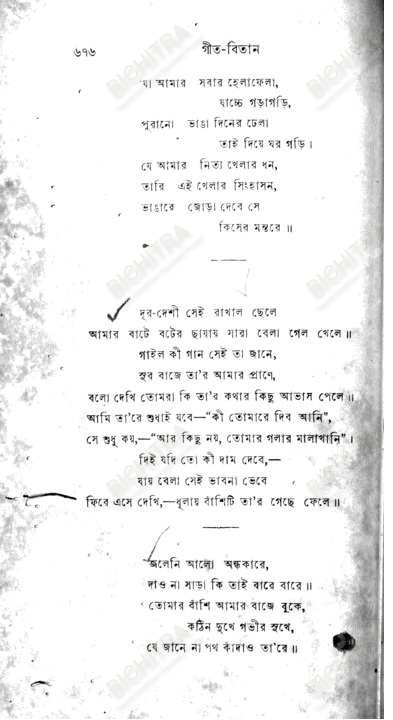 ৬৭৬ গীত-বিতান
যা আমার সবার হেলাফেলা,
যাচ্ছে গড়াগড়ি,
পুরানো ভাঙা দিনের ঢেলা
তাই দিয়ে ঘর গড়ি।
যে আমার নিত্য খেলার ধন,
তারি এই খেলার সিংহাসন,
ভাঙারে জোড়া দেবে সে
কিসের মন্তরে॥
দূর-দেশী সেই রাখাল ছেলে
আমার বাটে বটের ছায়ায় সারা বেলা গেল খেলে॥
গাইল কী গান সেই তা জানে,
সুর বাজে তা'র আমার প্রাণে,
বলো দেখি তোমরা কি তা'র কথার কিছু আভাস পেলে॥
আমি তা'রে শুধাই যবে—"কী তোমারে দিব আনি",
সে শুধু কয়,—"আর কিছু নয়, তোমার গলার মালাখানি"।
দিই যদি তো কী দাম দেবে,—
যায় বেলা সেই ভাবনা ভেবে
ফিরে এসে দেখি,—ধূলায় বাঁশিটি তা'র গেছে ফেলে॥
জ্বলেনি আলো অন্ধকারে,
দাও না সাড়া কি তাই বারে বারে॥
তোমার বাঁশি আমার বাজে বুকে,
কঠিন দুখে গভীর সুখে,
যে জানে না পথ কাঁদাও তা'রে॥
BICHITRA
BICHITRA
BICHITRA
BICHITRA
BICHITRA
BICHITRA